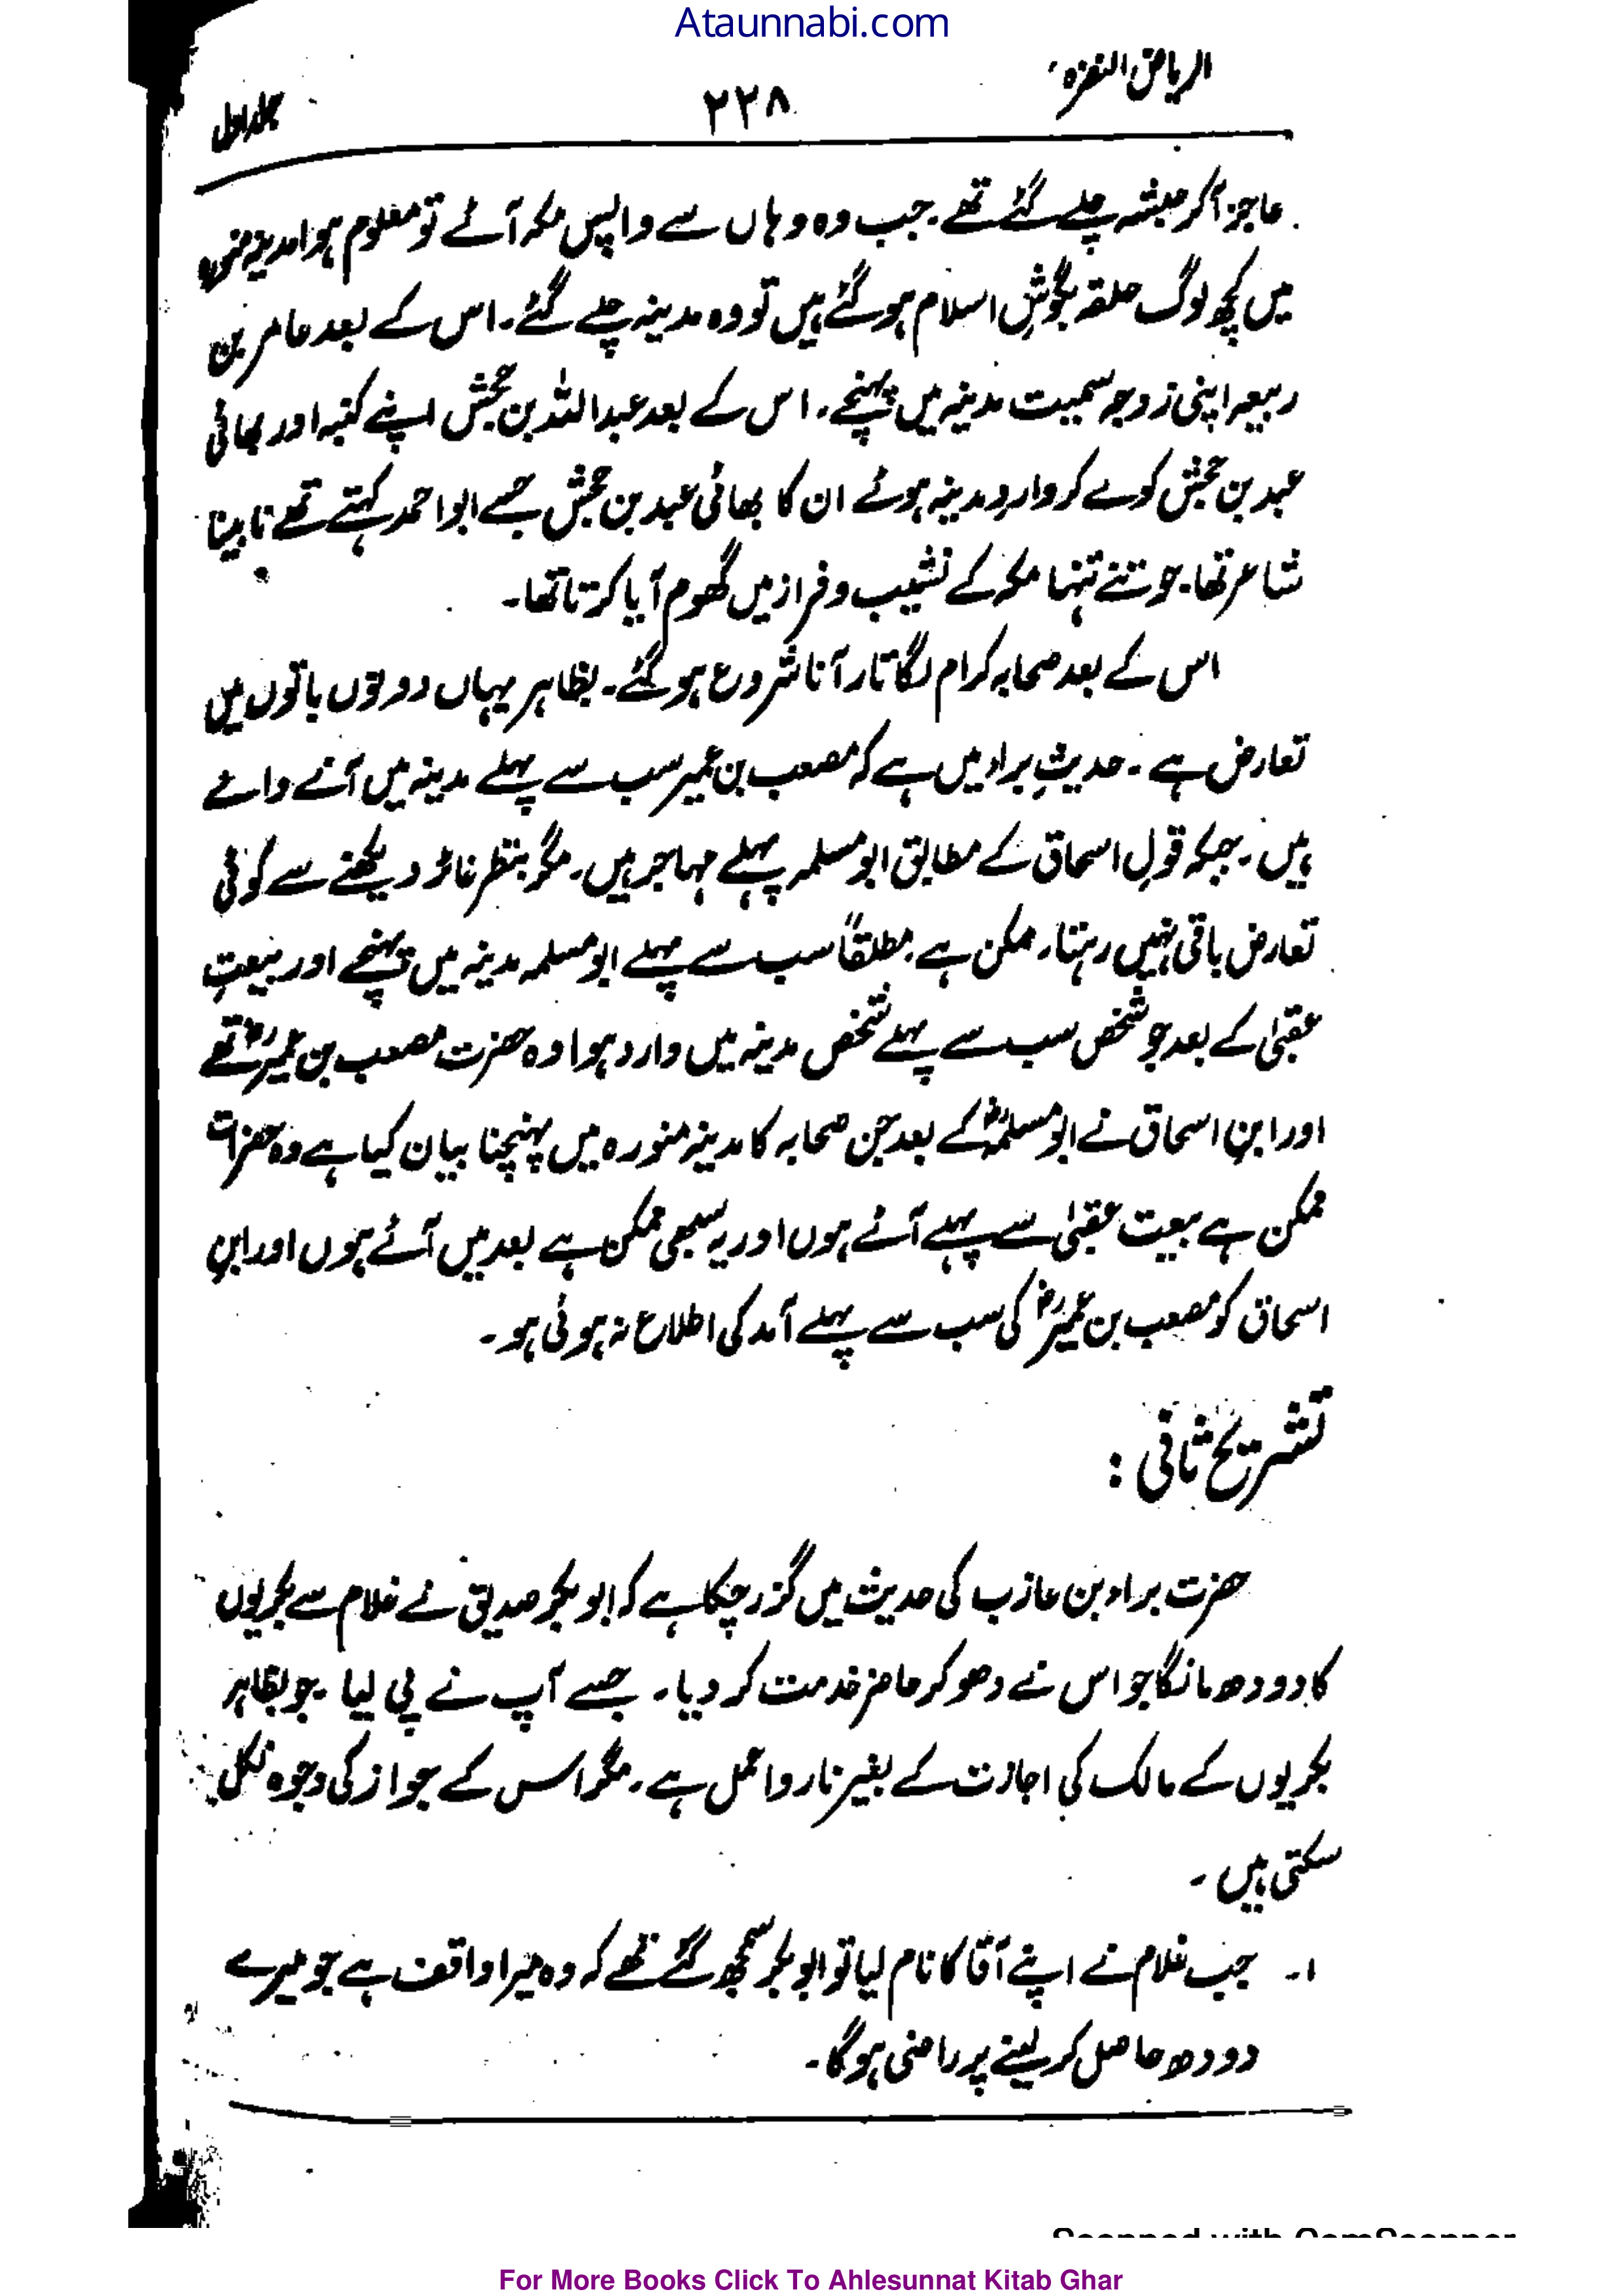 Ataunnabi.com
الریاض النضرہ
۲۲۸
جلد اول
عاجز آکر حبشہ چلے گئے تھے۔ جب وہ وہاں سے واپس مکہ آئے تو معلوم ہوا مدینہ منورہ
میں کچھ لوگ حلقہ بگوشِ اسلام ہو گئے ہیں تو وہ مدینہ چلے گئے۔ اس کے بعد عامر بن
ربیعہ اپنی زوجہ سمیت مدینہ میں پہنچے۔ اس کے بعد عبداللہ بن جحش اپنے کنبہ اور بھائی
عبد بن جحش کو لے کر واردِ مدینہ ہوئے ان کا بھائی عبد بن جحش جسے ابو احمد کہتے تھے نابینا
شاعر تھا۔ جو تنے تنہا مکہ کے نشیب و فراز میں گھوم آیا کرتا تھا۔
اس کے بعد صحابہ کرام لگاتار آنا شروع ہو گئے۔ بظاہر یہاں دونوں باتوں میں
تعارض ہے۔ حدیثِ براء میں ہے کہ مصعب بن عمیر سب سے پہلے مدینہ میں آنے والے
ہیں۔ جبکہ قولِ اسحاق کے مطابق ابو مسلمہ پہلے مہاجر ہیں۔ مگر بنظر غائر دیکھنے سے کوئی
تعارض باقی نہیں رہتا۔ ممکن ہے مطلقاً سب سے پہلے ابو مسلمہ مدینہ میں پہنچے اور بیعتِ
عقبیٰ کے بعد جو شخص سب سے پہلے شخص مدینہ میں وارد ہوا وہ حضرت مصعب بن عمیرؓ تھے
اور ابنِ اسحاق نے ابو مسلمہؓ کے بعد جن صحابہ کا مدینہ منورہ میں پہنچنا بیان کیا ہے وہ حضرات
ممکن ہے بیعت عقبیٰ سے پہلے آئے ہوں اور یہ بھی ممکن ہے بعد میں آئے ہوں اور ابنِ
اسحاق کو مصعب بن عمیرؓ کی سب سے پہلے آمد کی اطلاع نہ ہوئی ہو۔
تشریح ثانی :
حضرت براء بن عازب کی حدیث میں گزر چکا ہے کہ ابو بکر صدیق نے غلام سے بکریوں
کا دودھ مانگا جو اس نے دھو کر حاضر خدمت کر دیا۔ جسے آپ نے پی لیا۔ جو بظاہر
بکریوں کے مالک کی اجازت کے بغیر ناروا عمل ہے۔ مگر اس کے جواز کی وجوہ نکل
سکتی ہیں۔
۱۔ جب غلام نے اپنے آقا کا نام لیا تو ابو بکر سمجھ گئے تھے کہ وہ میرا واقف ہے جو میرے
دودھ حاصل کر لینے پر راضی ہوگا۔
Scanned with CamScanner
For More Books Click To Ahlesunnat Kitab Ghar